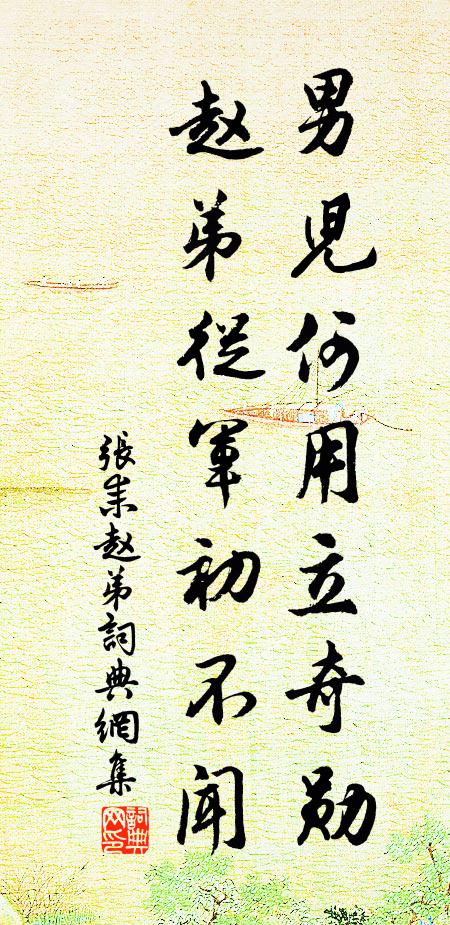 男児何用立奇勋
赵弟從軍初不闻
張耒赵弟詞典網集
詞典网印